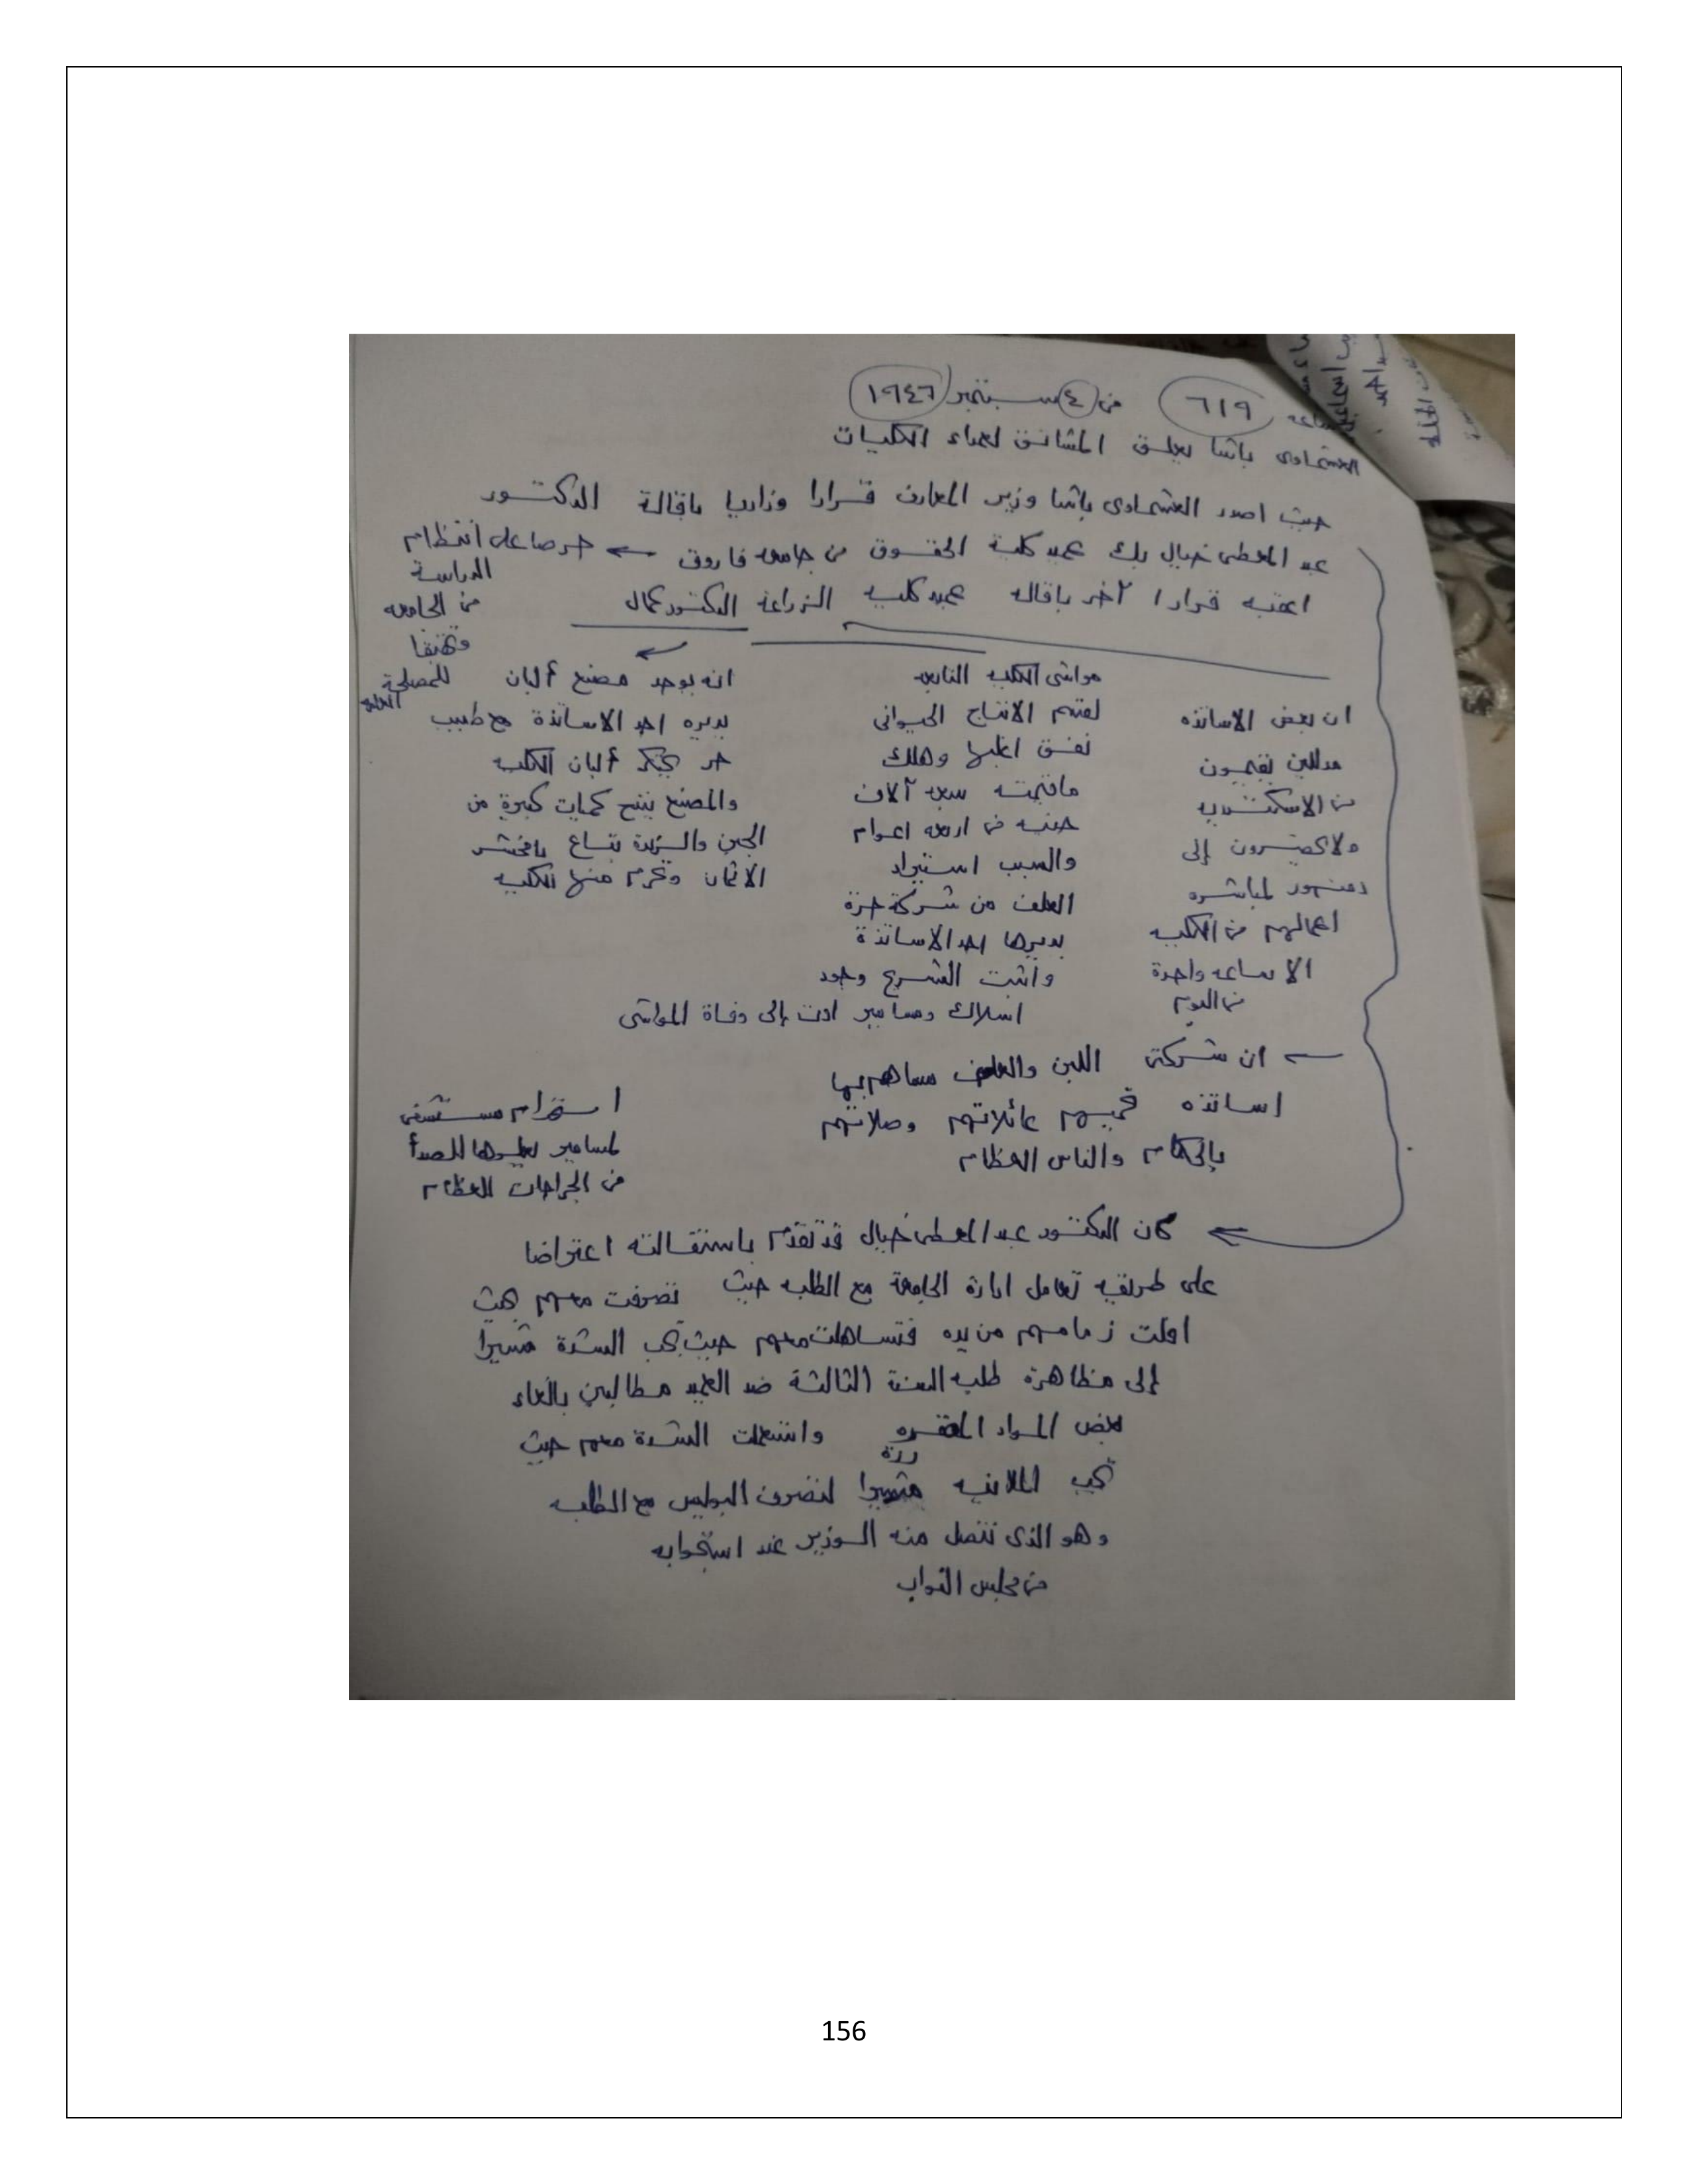 ٦١٩ فى ٤ سبتمبر ١٩٤٦
العشماوى باشا يعلق المشانق لعمداء الكليات
حيث اصدر العشماوى باشا وزير المعارف قرارا وزاريا باقالة الدكتور
عبد المعطى خيال بك عميد كلية الحقوق من جامعة فاروق ← حرصا على انتظام
الدراسة
فى الجامعه
وتحقيقا
للمصلحة
العامه
اعقبه قرارا آخر باقاله عميد كليه الزراعة الدكتور كمال
ان بعض الاساتذه
مدللين يقيمون
فى الاسكندريه
ولا يحضرون إلى
دمنهور لمباشره
اعمالهم فى الكليه
الا ساعه واحدة
فى اليوم
مواشى الكليه التابعه
لقسم الانتاج الحيوانى
نفق اغلبها وهلك
ماقيمته سبعه آلاف
جنيه فى اربعه اعوام
والسبب استيراد
العلف من شركة حرة
يديرها احد الاساتذة
واثبت التشريح وجود
اسلاك ومسامير ادت إلى وفاة المواشى
انه يوجد مصنع ألبان
يديره احد الاساتذة مع طبيب
حر يحتكر ألبان الكليه
والمصنع ينتج كميات كبيرة من
الجبن والزبدة تباع بافحش
الاثمان وتحرم منها الكليه
← ان شركتى اللبن والعلف مساهم بها
اساتذه تحميهم عائلاتهم وصلاتهم
بالحكام والناس العظام
استخدام مستشفى
لمسامير يعلوها الصدأ
فى الجراحات العظام
كان الدكتور عبد المعطى خيال قد تقدم باستقالته اعتراضا
على طريقه تعامل ادارة الجامعة مع الطلبه حيث تصرفت معهم بحيث
افلت زمامهم من يده فتساهلت معهم حيث تجب الشدة مشيرا
إلى مظاهرة طلبه السنة الثالثة ضد العميد مطالبين بالغاء
بعض المواد المقرره واستعملت الشدة معهم حيث
ررة
تجب الملاينه مشيرا لتصرف البوليس مع الطلبه
وهو الذى تنصل منه الوزير عند استجوابه
فى مجلس النواب
156